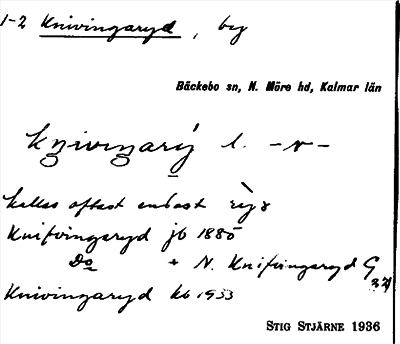 1-2 Knivingaryd, by
Bäckebo sn, N. Möre hd, Kalmar län
l. -v-
kallas oftast endast
Knifvingaryd jb 1880
Do + N. Knifvingaryd G
Knivingaryd kb 1933
STIG STJÄRNE 1936